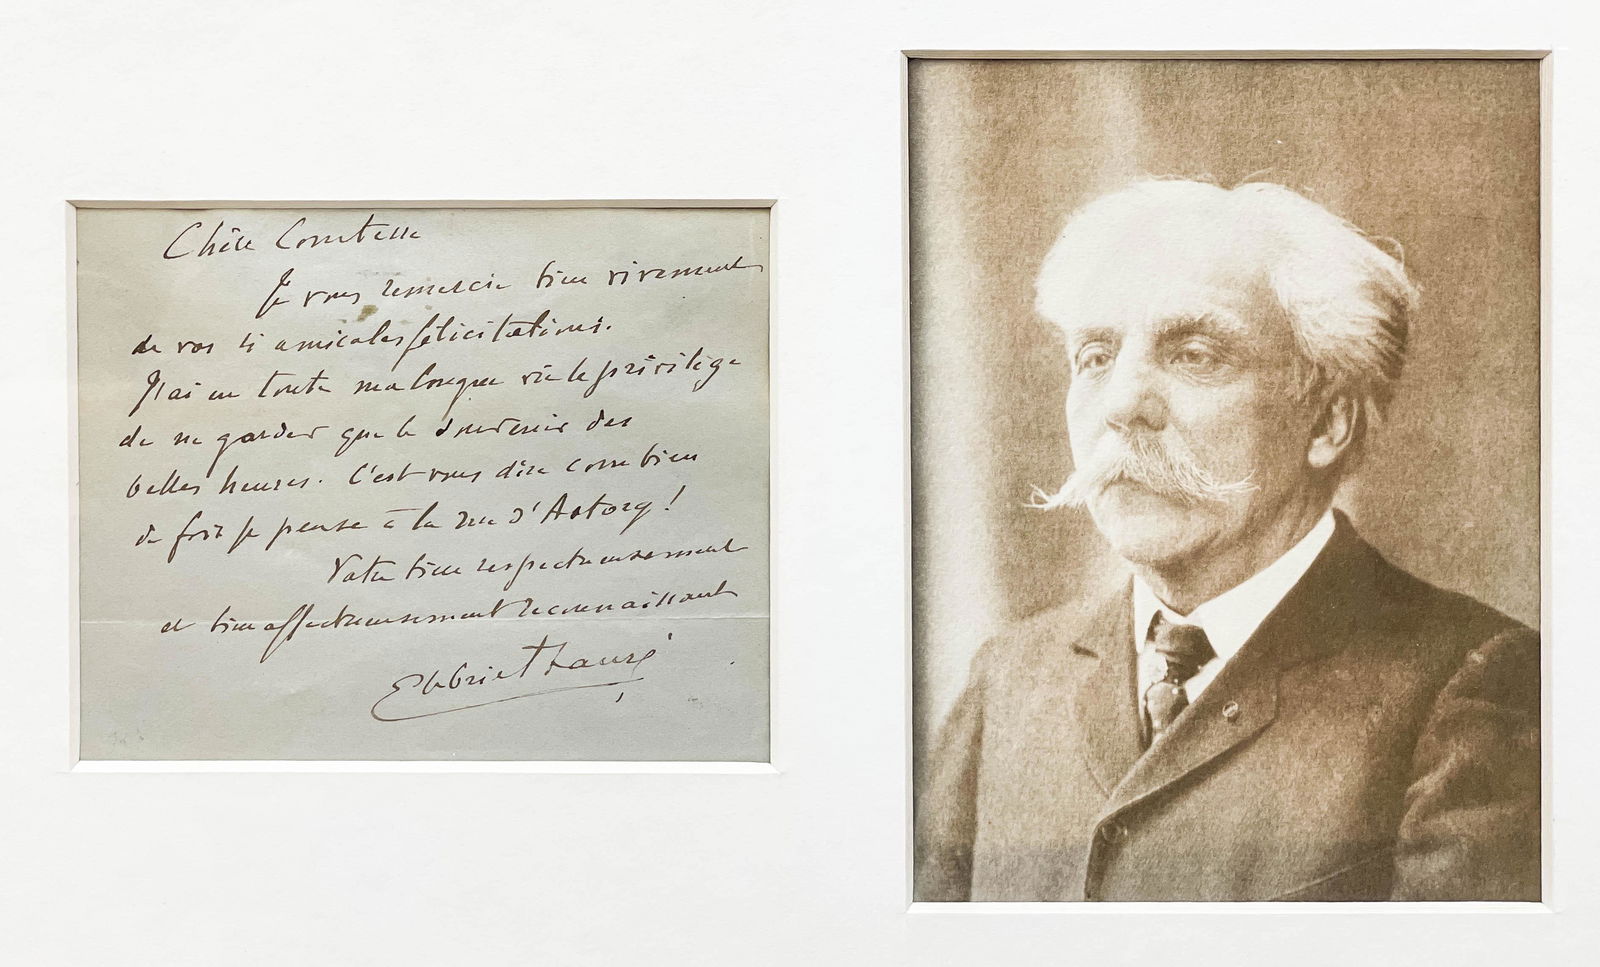 Chère Comtesse
Je vous remercie bien vivement
de vos si amicales félicitations.
J'ai eu toute ma longue vie le privilège
de ne garder que le souvenir des
belles heures. C'est vous dire combien
de fois je pense à la rue d'Astorg!
Votre bien respectueusement
et bien affectueusement reconnaissant
Gabriel Fauré